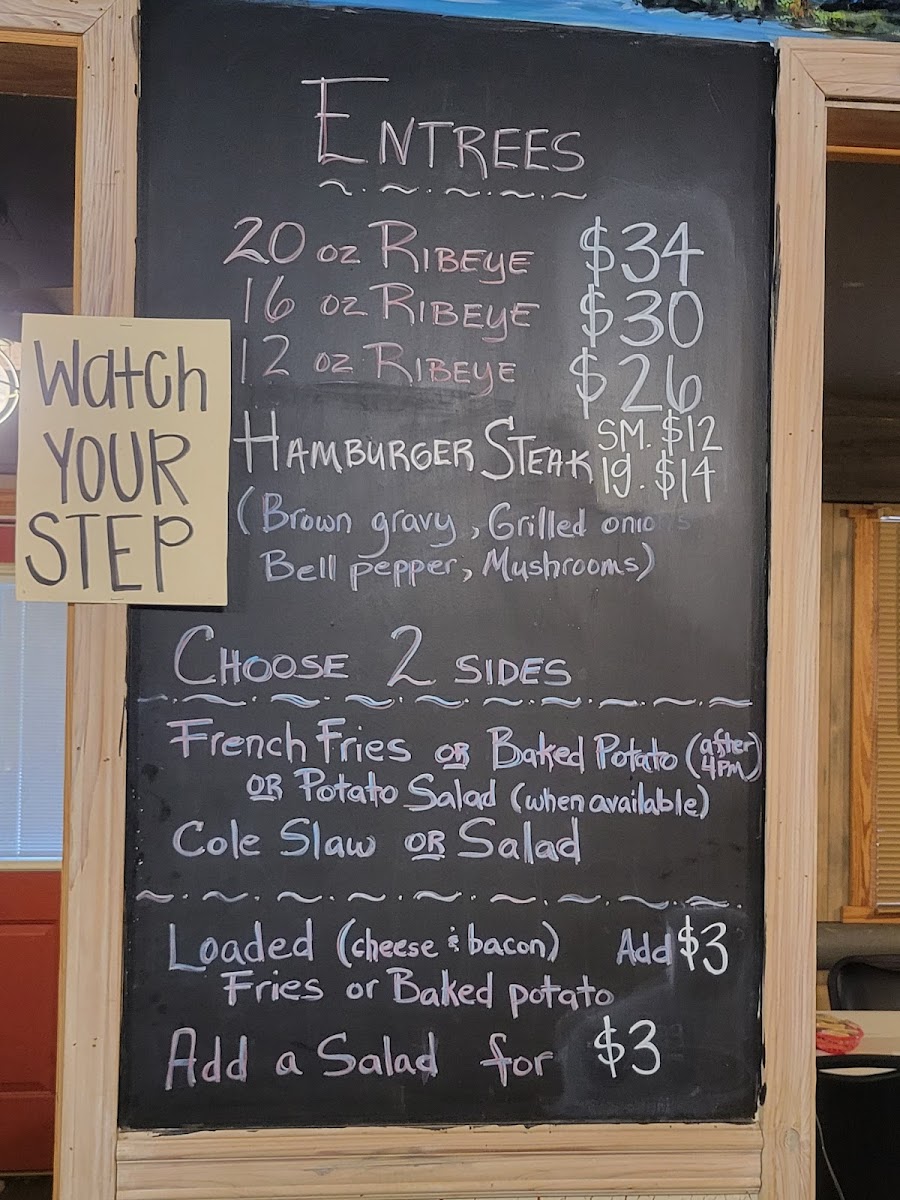 ENTREES
20 oz RIBEYE $34
16 oz RIBEYE $30
12 oz RIBEYE $26
HAMBURGER STEAK SM. $12
lg. $14
(Brown gravy, Grilled onions
Bell pepper, Mushrooms)
Watch
YOUR
STEP
CHOOSE 2 SIDES
French Fries OR Baked Potato (after 4PM)
OR Potato Salad (when available)
Cole Slaw OR Salad
Loaded (cheese & bacon) Add $3
Fries or Baked potato
Add a Salad for $3